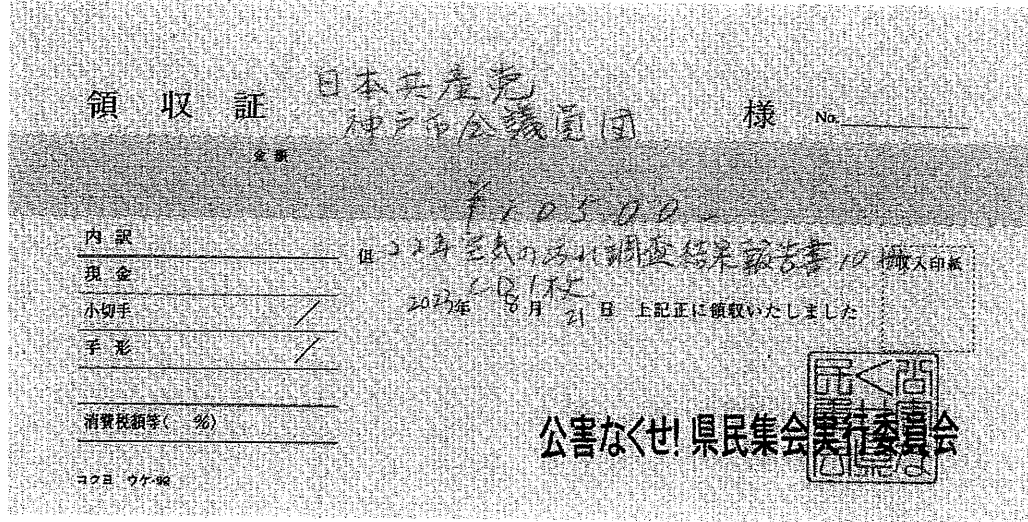 領 収 証
日本共産党
神戸市会議員団
様
No.
金額
¥10500-
内 訳
現 金
小切手
手 形
消費税額等( %)
コクヨ ウケ-92
但 22年空気の汚れ調査結果報告書10冊
CD1枚
収入印紙
2023年 8月 21日 上記正に領収いたしました
公害なくせ!県民集会実行委員会